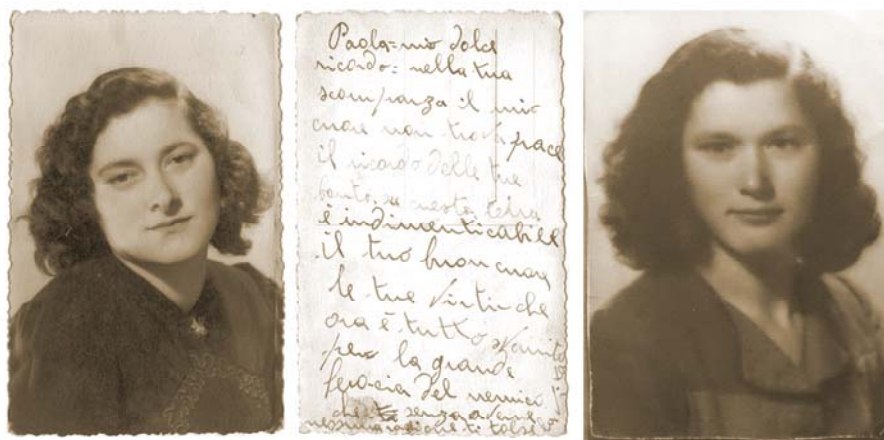 Paola=mio dolce
ricordo= nella tua
scomparsa il mio
cuore non trova pace
il ricordo delle tue
bonta, su questa tetra
è indimenticabile
il tuo buon cuore
le tue virtu che
ora è tutto svanito
per la grande
ferocia del nemico
che senza
che ti tolse